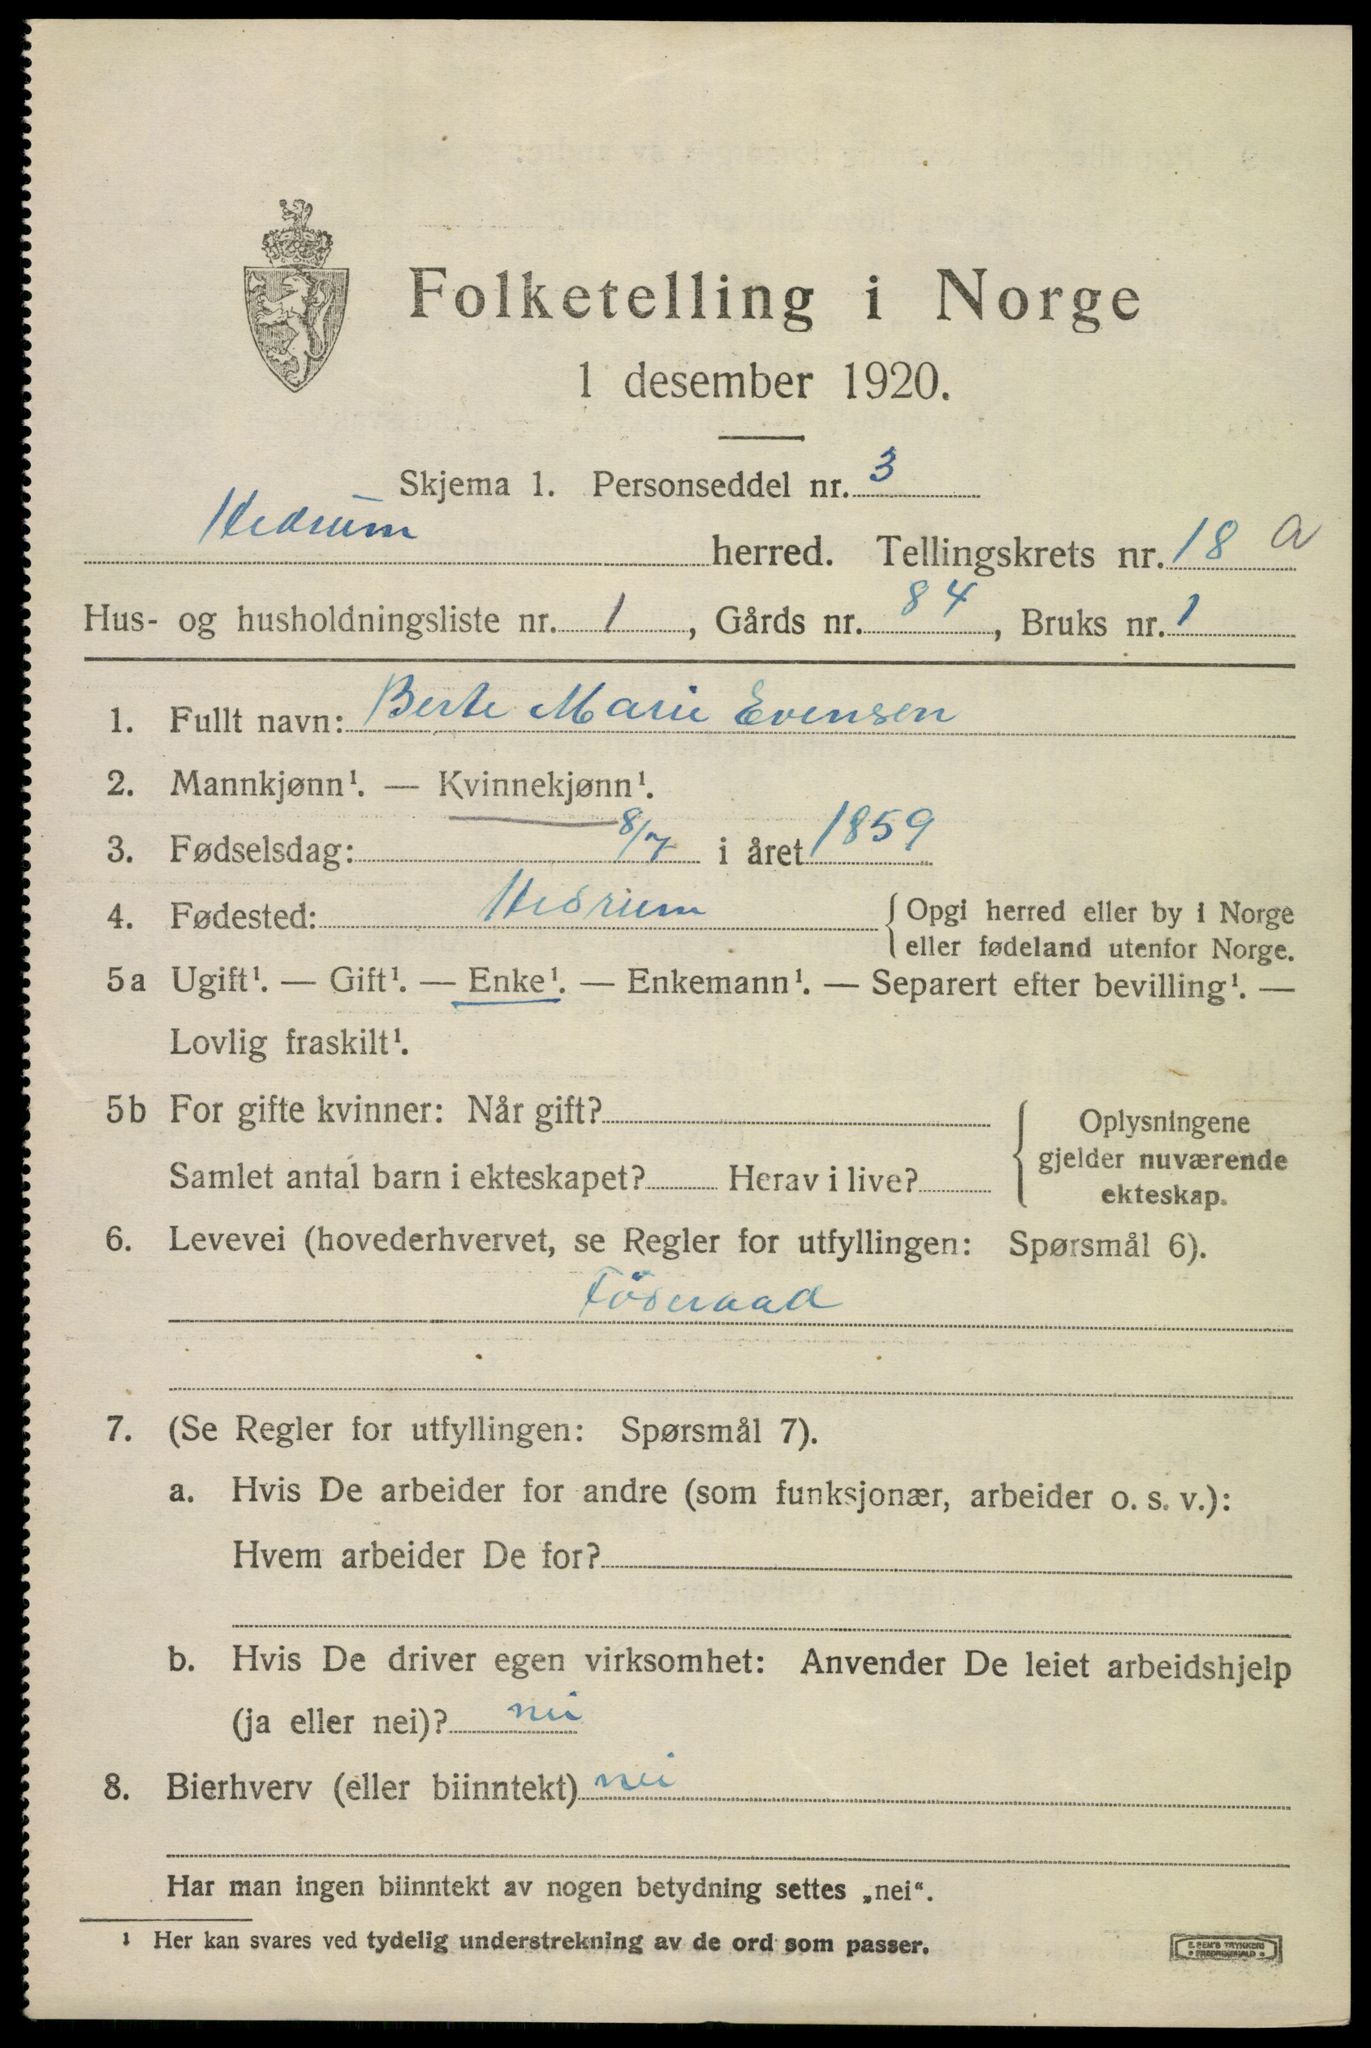 Folketelling i Norge
1 desember 1920.
Skjema 1. Personseddel nr. 3
Hedrum herred. Tellingskrets nr. 18 a
Hus- og husholdningsliste nr. 1, Gårds nr. 84, Bruks nr. 1
1. Fullt navn: Berte Marie Evensen
2. Mannkjønn¹. — Kvinnekjønn¹.
3. Fødselsdag: 8/7 i året 1859
4. Fødested: Hedrum { Opgi herred eller by i Norge
eller fødeland utenfor Norge.
5a Ugift¹. — Gift¹. — Enke¹. — Enkemann¹. — Separert efter bevilling¹. —
Lovlig fraskilt¹.
5b For gifte kvinner: Når gift?
Samlet antal barn i ekteskapet? Herav i live?
{ Oplysningene
gjelder nuværende
ekteskap.
6. Levevei (hovederhvervet, se Regler for utfyllingen: Spørsmål 6).
Föderaad
7. (Se Regler for utfyllingen: Spørsmål 7).
a. Hvis De arbeider for andre (som funksjonær, arbeider o. s. v.):
Hvem arbeider De for?
b. Hvis De driver egen virksomhet: Anvender De leiet arbeidshjelp
(ja eller nei)? nei
8. Bierhverv (eller biinntekt) nei
Har man ingen biinntekt av nogen betydning settes „nei“.
¹ Her kan svares ved tydelig understrekning av de ord som passer.
E. SEM'S TRYKKERI
• FREDRIKSHALD •